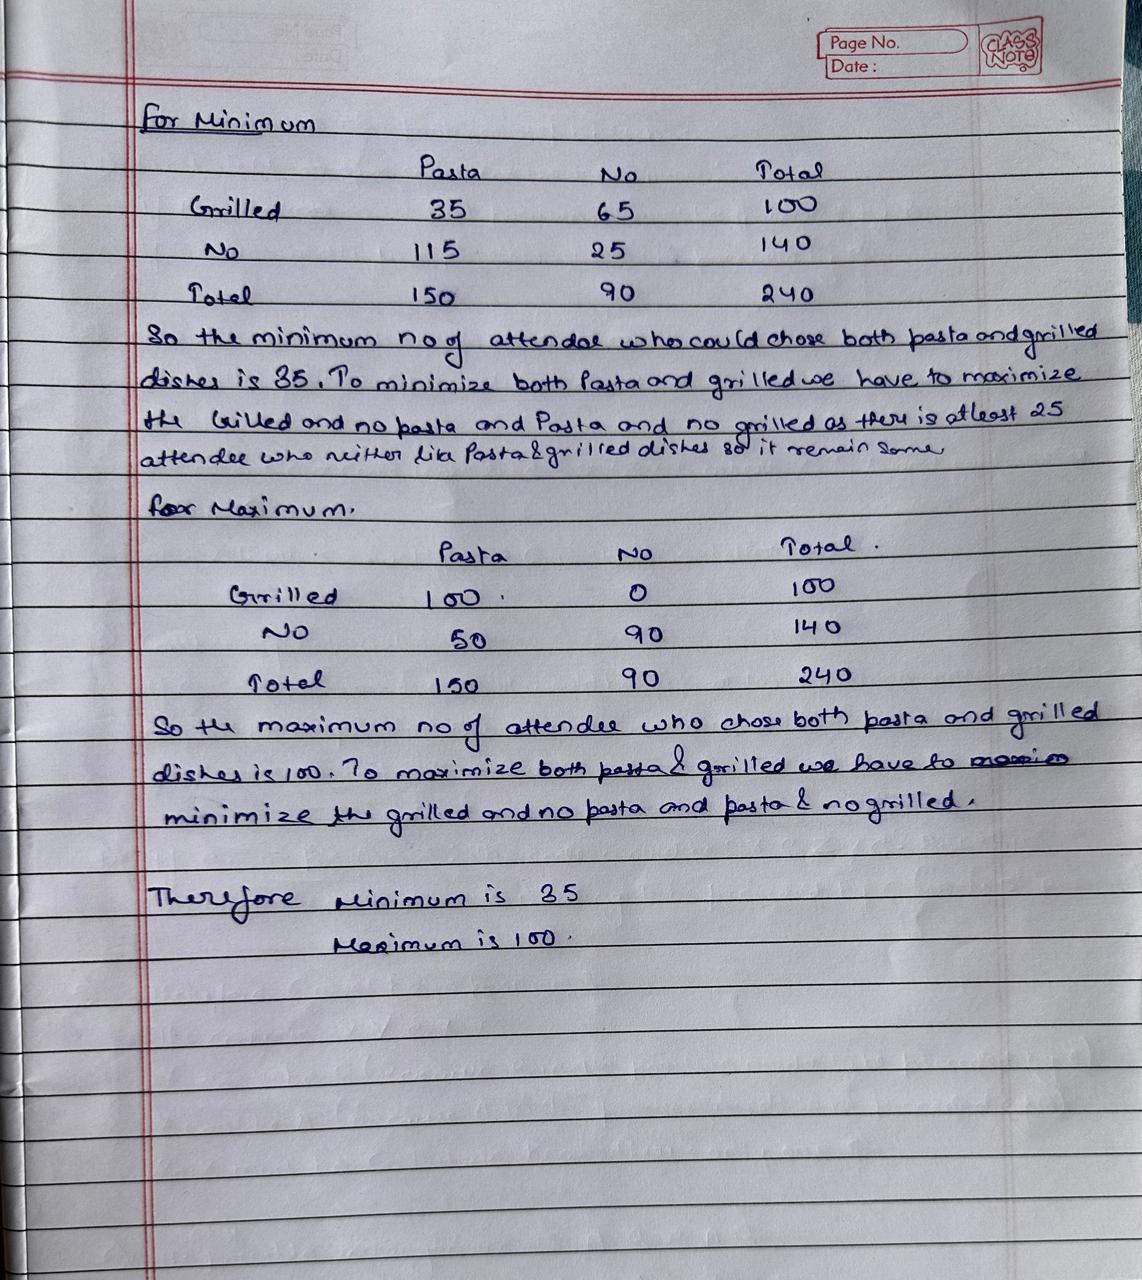 Page No.
Date :
CLASS NOTE
For Minimum
Pasta No Total
Grilled 35 65 100
No 115 25 140
Total 150 90 240
So the minimum no of attendee who could chose both pasta and grilled
dishes is 35. To minimize both Pasta and grilled we have to maximize
the Grilled and no pasta and Pasta and no grilled as there is atleast 25
attendee who neither like Pasta & grilled dishes so it remain same
for Maximum.
Pasta No Total .
Grilled 100 . 0 100
No 50 90 140
Total 150 90 240
So the maximum no of attendee who chose both pasta and grilled
dishes is 100. To maximize both pasta & grilled we have to
minimize the grilled and no pasta and pasta & no grilled.
Therefore Minimum is 35
Maximum is 100.